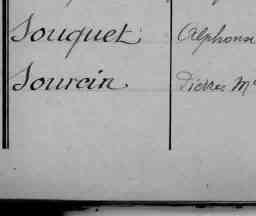 Souquet Alphons
Sourcin Pierre M